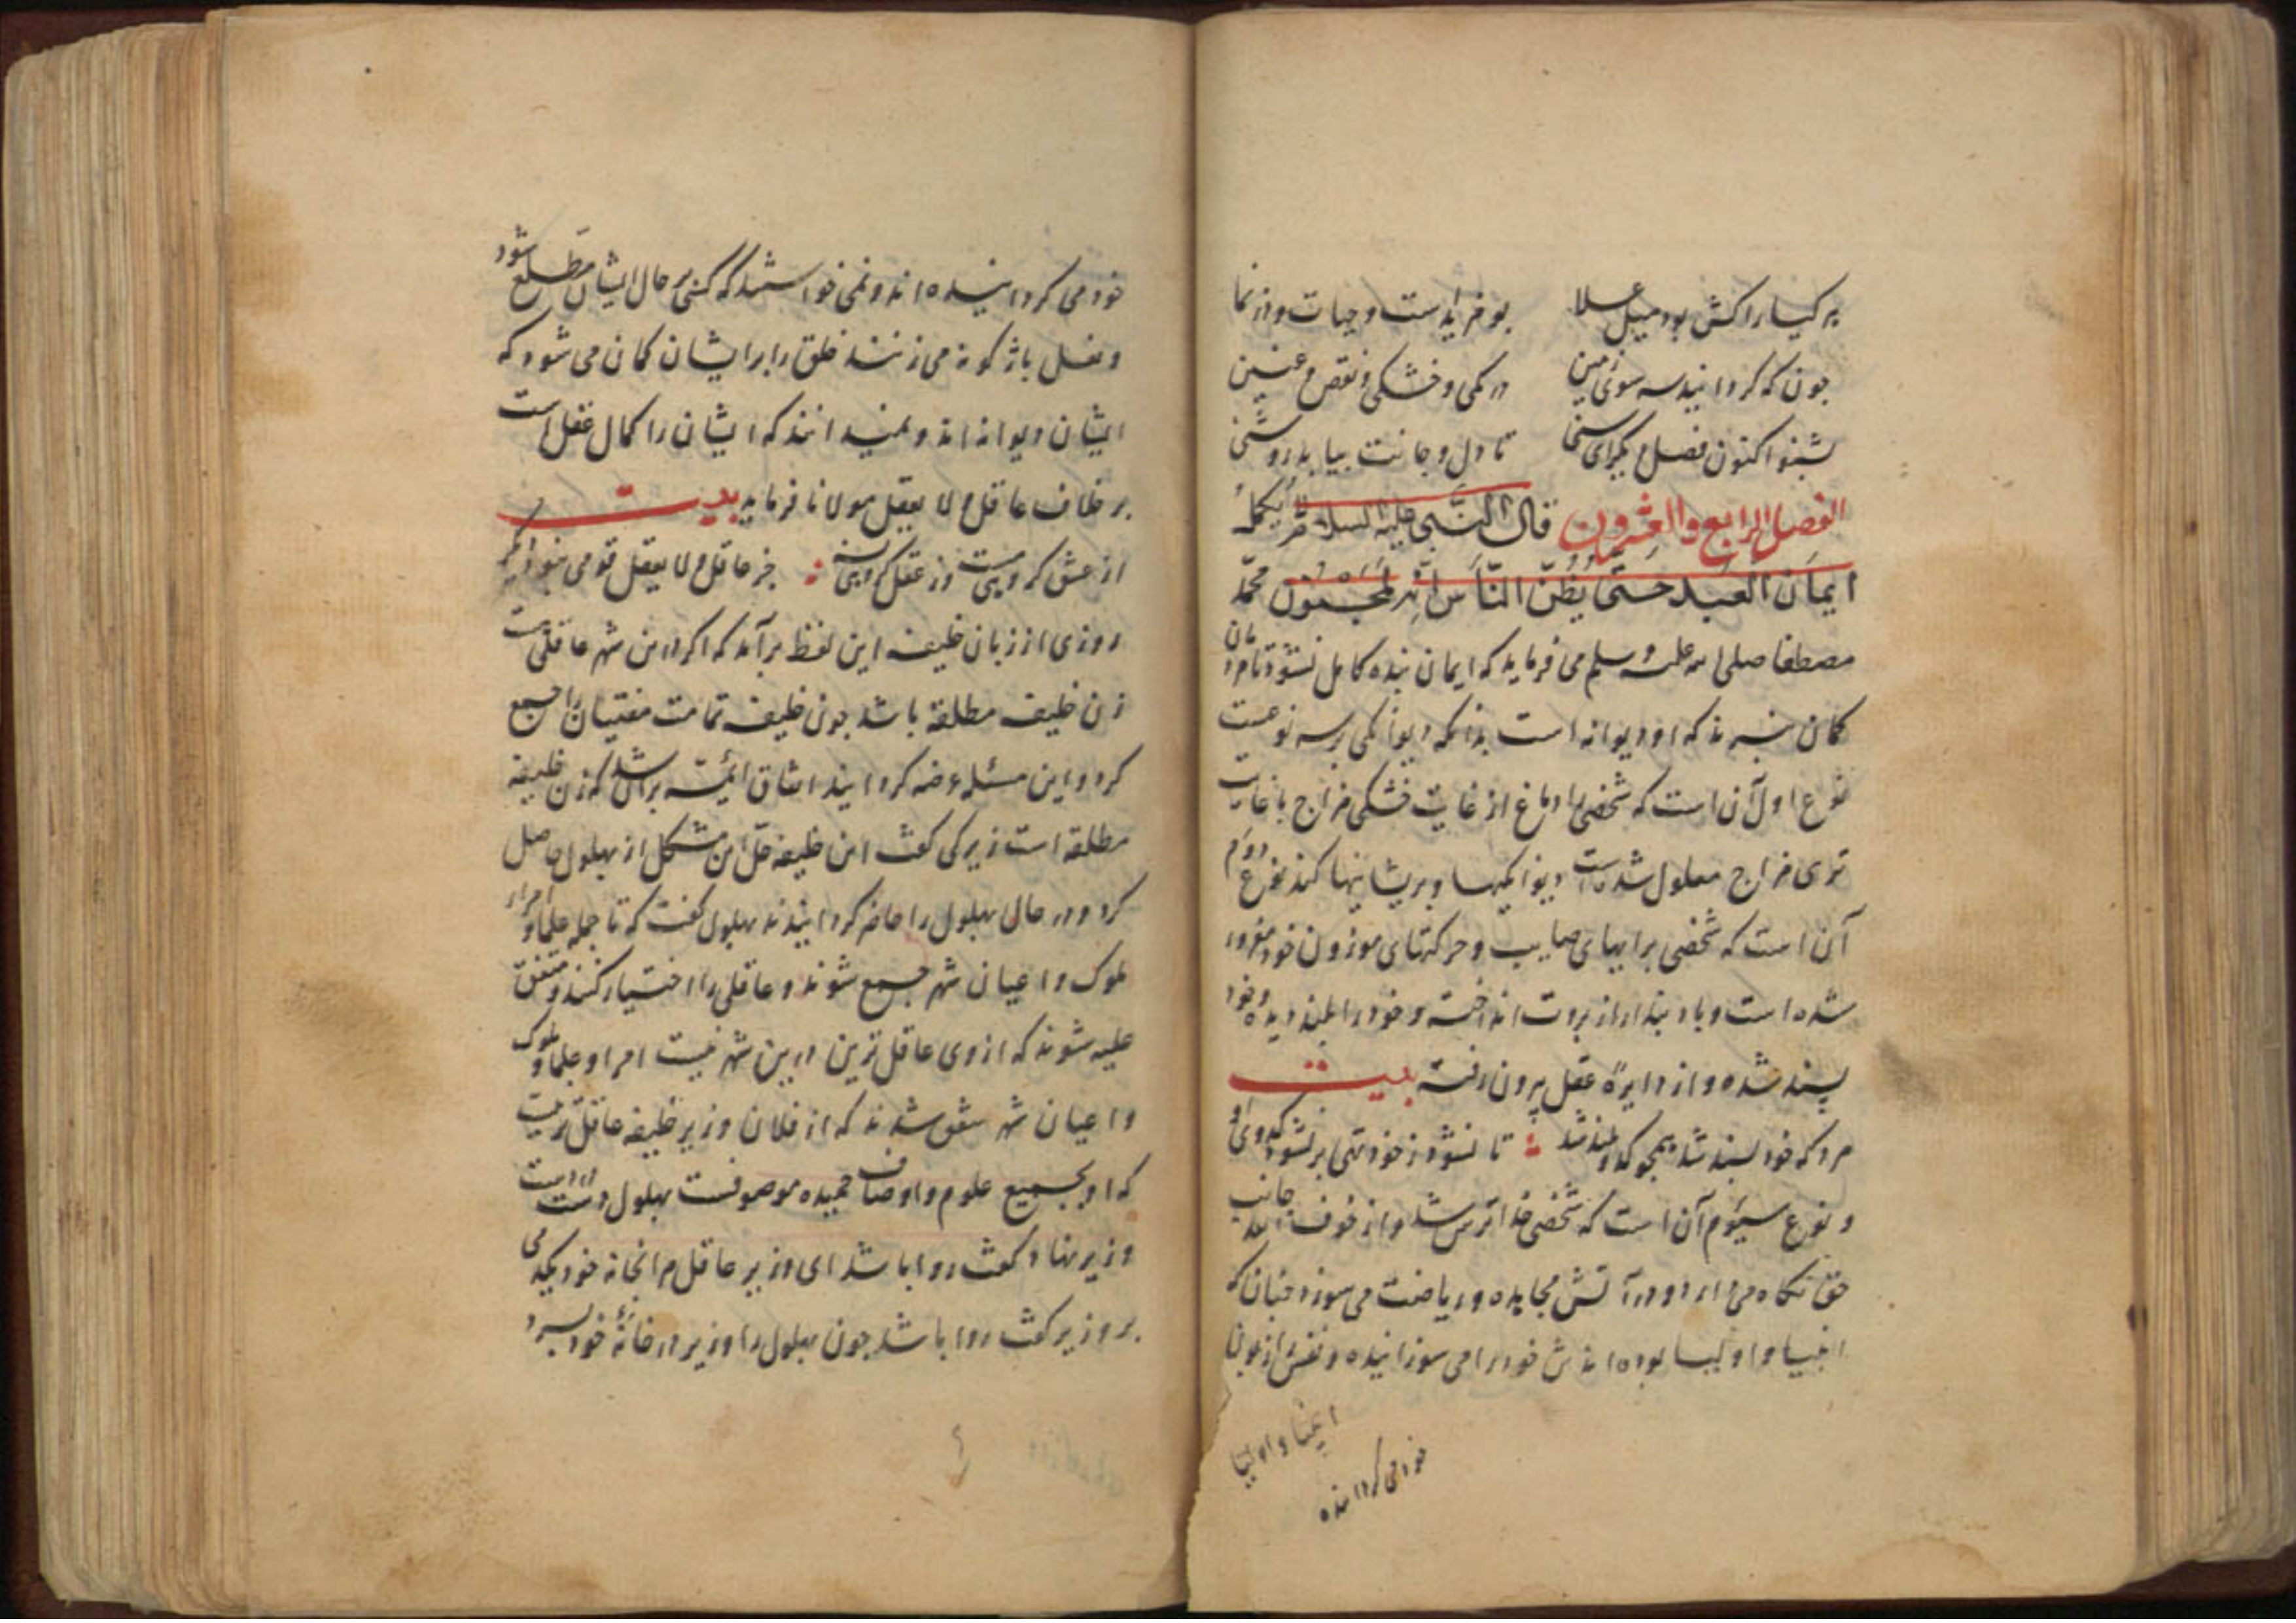 هر گیا را کش بود میل علا در فزایدست و حیات و در نما
چون که گردانید سر سوی زمین در کمی و خشکی و نقص و غبین
بشنو اکنون فصل دیگر ای سنی تا دل و جانت بیابد روشنی
الفصل الرابع والعشرون قال النبی علیه السلام لا یکمل
ایمان العبد حتی یظن الناس انه لمجنون محمد
مصطفا صلی الله علیه وسلم می فرماید که ایمان بنده کامل نشود تا مردمان
کمان نبرند که او دیوانه است بدانکه دیوانکی بر سه نوعست
نوع اول آن است که شخصی را دماغ از غایت خشکی مزاج یا غایت
تری مزاج معلول شده است دیوانکیها و پریشانیها کند نوع دوم
آن است که شخصی برایهای صایب و حرکتهای موزون خود مغرور
شده است و باد پندار از بروت انداخته و خود را بلند دیده و خود
پسند شده و از دایرهٔ عقل بیرون رفته بیت
مرد که خود پسند شد همچو کدو بلند شد تا نشود ز خود تهی بر نشود کدوی او
و نوع سیوم آن است که شخصی خدا ترس شد و از خوف الله جانب
حق نگاه می دارد و در آتش مجاهده و ریاضت می سوزد چنان که
انبیا و اولیا بوده اند خود را می سوزانیده و نفس را زبون
انبیا و اولیا
خود می گردانیده
خود می گردانیده اند و نمی خواستند که کسی بر حال ایشان مطلع شود
و نعل باژگونه می زنند خلق را بر ایشان کمان می شود که
ایشان دیوانه اند و نمیدانند که ایشان را کمال عقل است
بر خلاف عاقل لا یعقل مولانا فرماید بیت
از عشق گروهی مست وز عقل گروهی جز عاقل و لا یعقل قومی دگر
روزی از زبان خلیفه این لفظ برآمد که اکر درین شهر عاقلی است
زن خلیفه مطلقه باشد چون خلیفه تمامت مفتیان را جمع
کرد و این مسئله عرضه کردانید اتفاق ائمه بر آن شد که زن خلیفه
مطلقه است زیرکی گفت این خلیفه حل این مشکل از بهلول حاصل
کرد و در حال بهلول را حاضر کردانیدند بهلول گفت که تا جمله علما و امرا و
ملوک و اعیان شهر جمع شوند و عاقلی را اختیار کنند و متفق
علیه شوند که از وی عاقل ترین درین شهر نیست امرا و علما و ملوک
و اعیان شهر متفق شدند که از فلان وزیر خلیفه عاقل تر نیست
که او بجمیع علوم و اوصاف حمیده موصوفست بهلول دست در دست
وزیر نهاد گفت روا باشد ای وزیر عاقل مرا بخانه خود یکدمی
بر وزیر گفت روا باشد چون بهلول را وزیر در خانهٔ خود ببرد